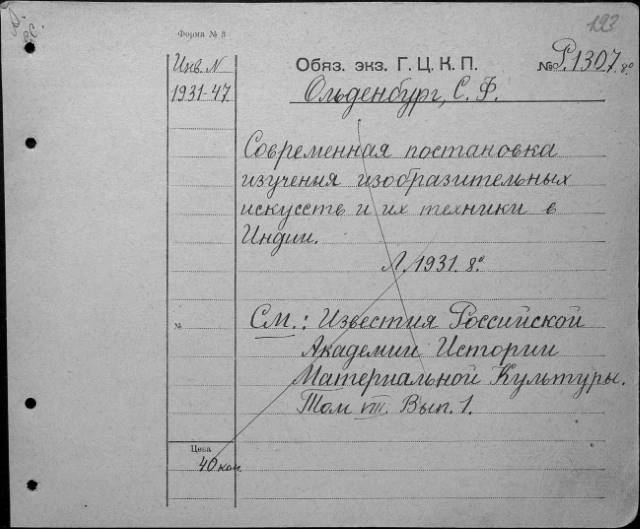 Форма № 3
193
Инв. N
1931-47
Обяз. экз. Г. Ц. К. П.
№ Р.1307. 8º
Ольденбург, С. Ф.
Современная постановка
изучения изобразительных
искусств и их техники в
Индии.
Л. 1931. 8º
№
См.: Известия Российской
Академии Истории
Материальной Культуры.
Том VIII. Вып. 1.
Цена
40 коп.